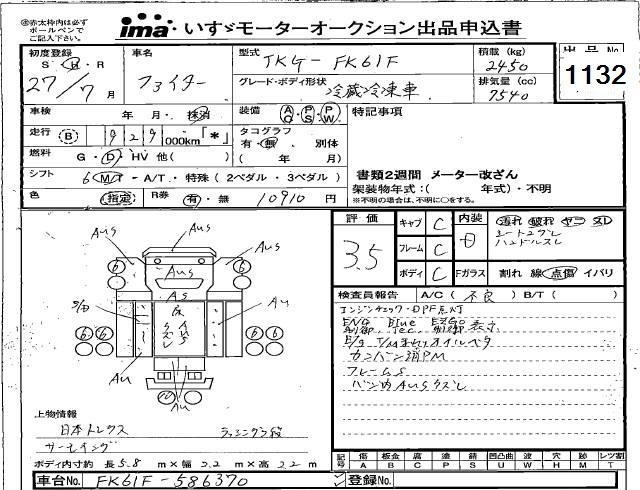 ※赤太枠内は必ず
ボールペンで
ご記入下さい。
ima いすゞモーターオークション出品申込書
初度登録
S・H・R
27/7月
車名
ファイター
型式
TKG-FK61F
グレード・ボディ形状
冷蔵冷凍車
積載 (kg)
2450
排気量 (cc)
7540
出品No
1132
車検
年 月・抹消
装備
AC・PS・PW
特記事項
走行 (B)
929 000km「*」
タコグラフ
有・無、別体
( 年 月)
燃料
G・D・HV 他( )
シフト
6 M/T・A/T・特殊(2ペダル・3ペダル)
書類2週間 メーター改ざん
架装物年式:( 年式)・不明
※不明の場合は、不明に○をする。
色
(指定)
R券
有・無
10910円
評価
3.5
キャブ C
フレーム C
ボディ C
内装
Fガラス
汚れ 破れ ヤニ スレ
シートスレ
ハンドルスレ
割れ 線 点傷 イバリ
検査員報告
A/C(不良) B/T( )
エンジンチェック・DPF点灯
フレームS
Aus
Aus
Aus
Aus
Aus
As
S/D
Au
Au
Aus
上物情報
日本トレクス
ラッシング2段
サーモキング
ボディ内寸約 長5.8 m×幅2.2 m×高2.2 m
記号
傷 板金 腐 塗 錆 凹凸曲 波 穴 跡 レツ割
A B C P S U W H M T
車台No.
FK61F-586370
登録No.